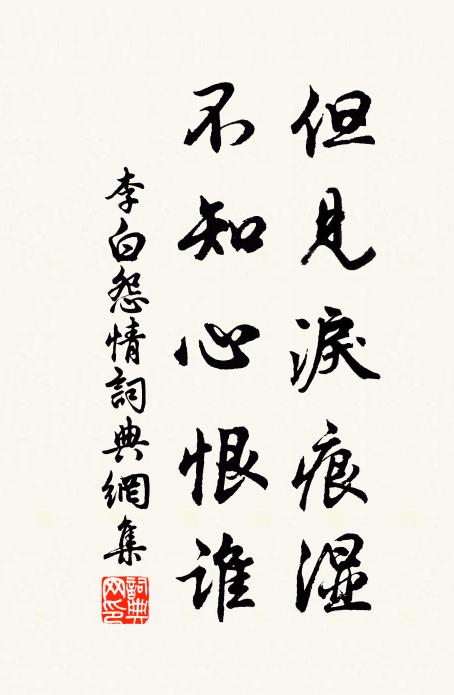 但見淚痕濕
不知心恨誰
李白怨情詞典網集
詞典網印